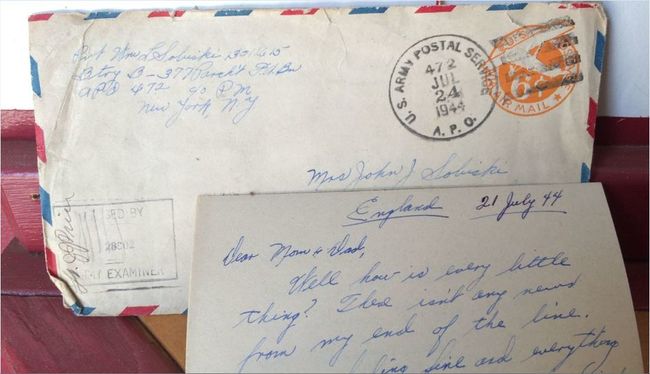 Pvt Wm L Sobiski
Btry B - 377 Parcht F.A. Bn
APO 472 % PM
New York, NY
U.S. ARMY POSTAL SERVICE
472
JUL
24
1944
A.P.O.
AIR MAIL
6
Mrs John J Sobiski
SED BY
ARMY EXAMINER
England 21 July 44
Dear Mom & Dad,
Well how is every little
thing? There isn't any news
from my end of the line.
feeling fine and everything